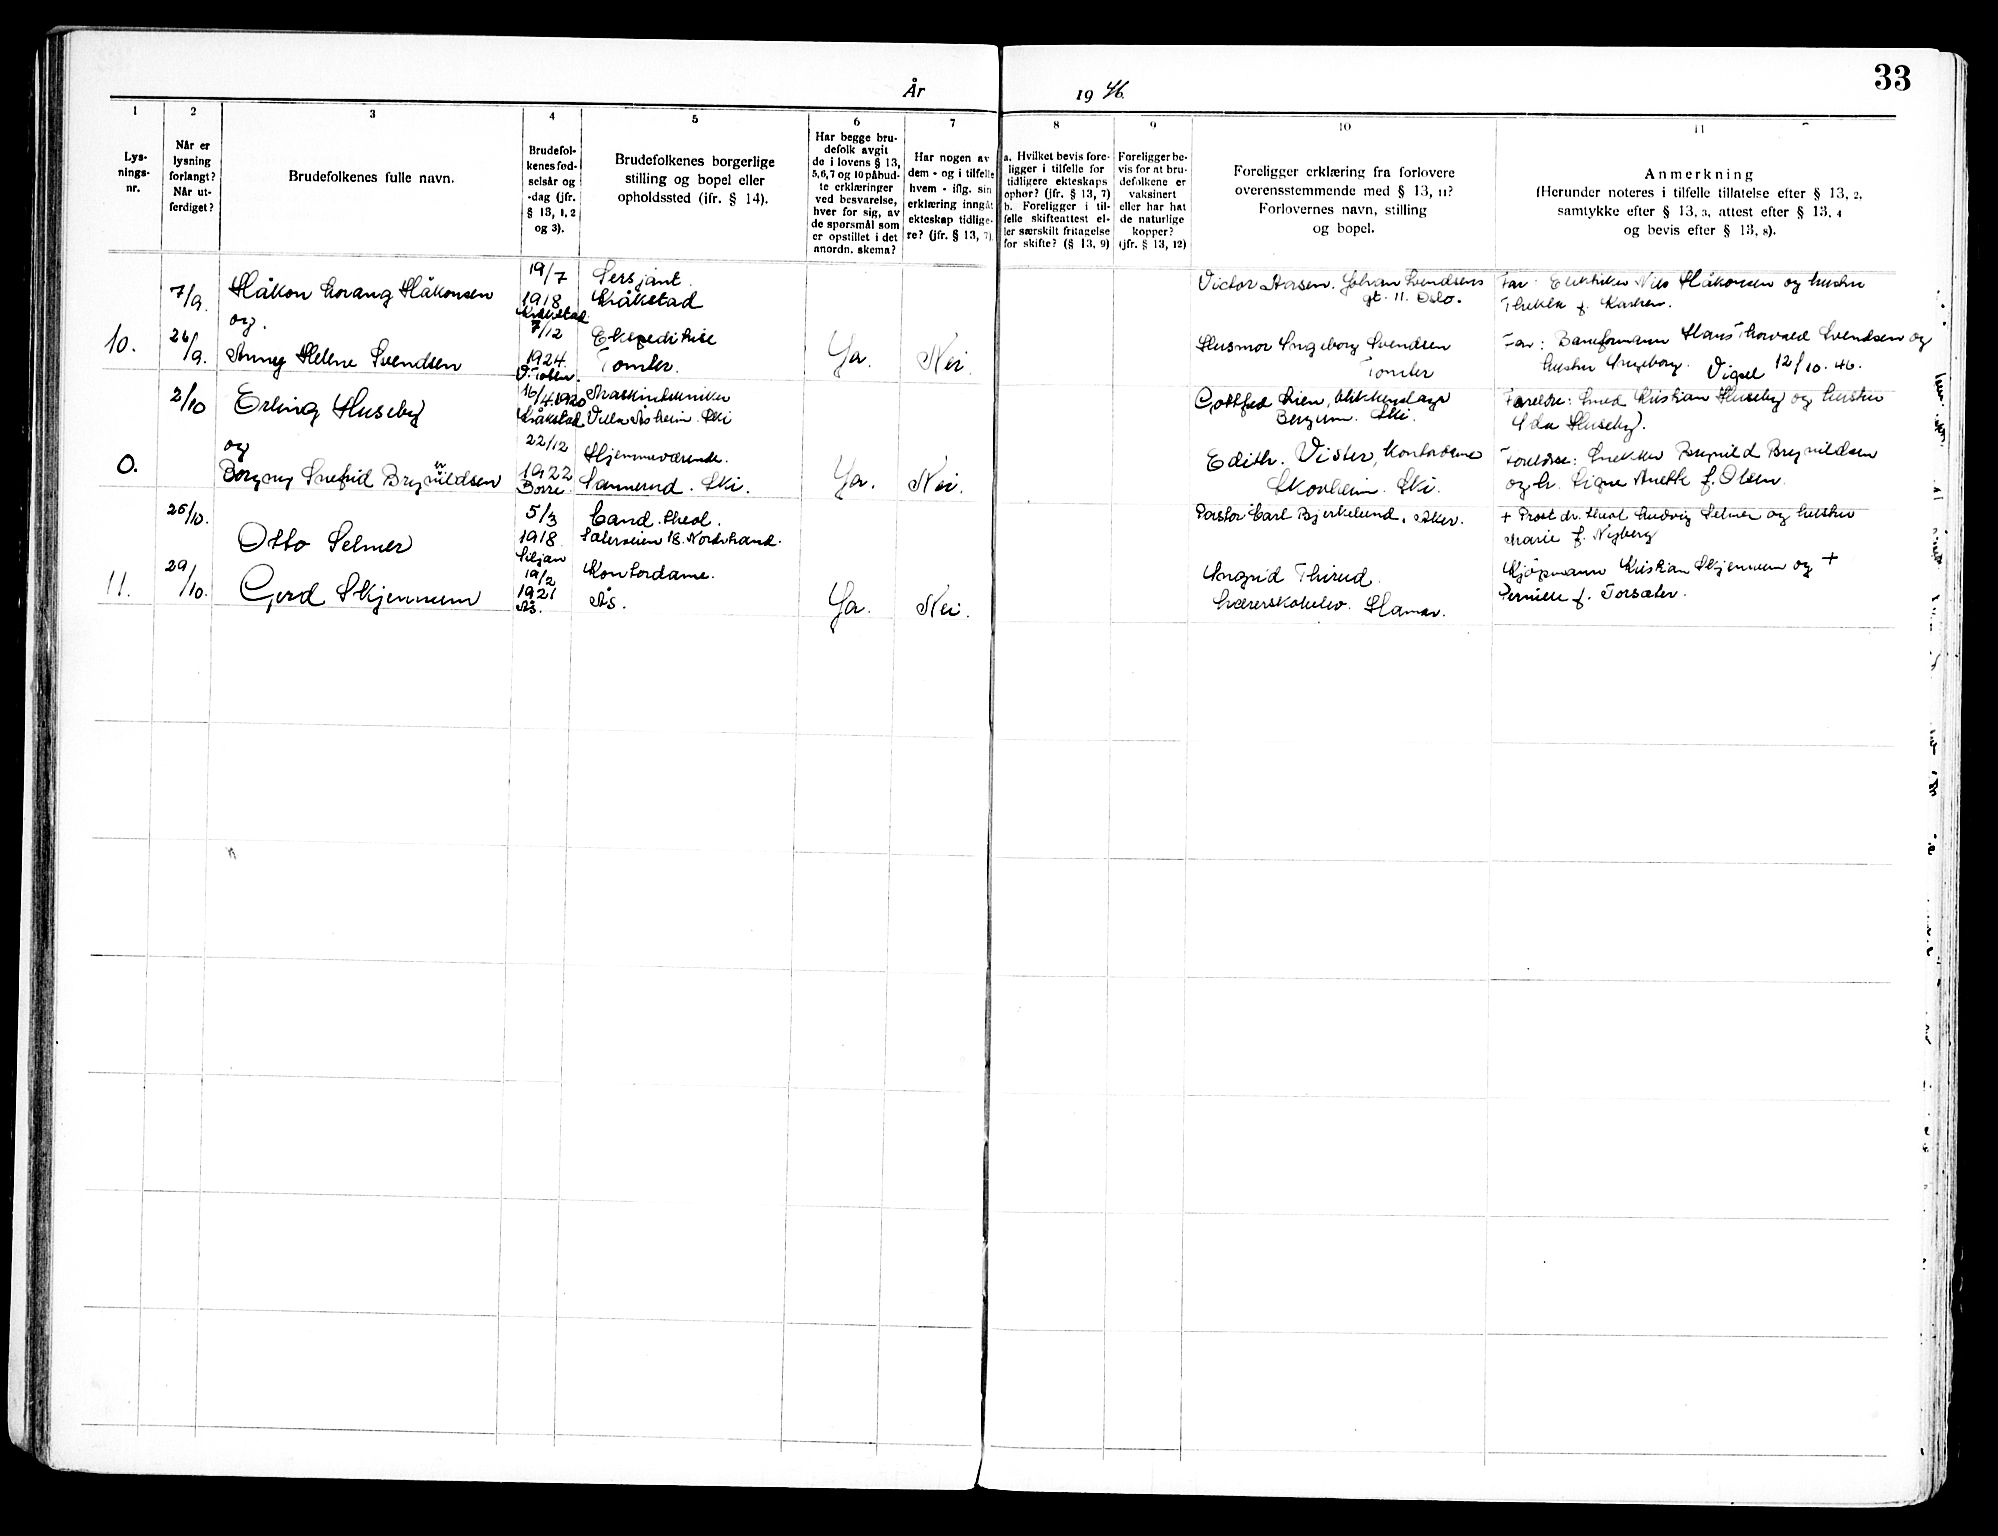 33
År 1946.
1
2
3
4
5
6
7
8
9
10
11
Lys-
nings-
nr.
Når er
lysning
forlangt?
Når ut-
ferdiget?
Brudefolkenes fulle navn.
Brudefol-
kenes fød-
selsår og
-dag (jfr.
§ 13, 1, 2
og 3).
Brudefolkenes borgerlige
stilling og bopel eller
opholdssted (jfr. § 14).
Har begge bru-
defolk avgit
de i lovens § 13,
5, 6, 7 og 10 påbud-
te erklæringer
ved besvarelse,
hver for sig, av
de spørsmål som
er opstillet i det
anordn. skema?
Har nogen av
dem - og i tilfelle
hvem - iflg. sin
erklæring inngåt
ekteskap tidlige-
re? (jfr. § 13, 7).
a. Hvilket bevis fore-
ligger i tilfelle for
tidligere ekteskaps
ophør? (jfr. § 13, 7)
b. Foreligger i til-
felle skifteattest el-
ler særskilt fritagelse
for skifte? (§ 13, 9)
Foreligger be-
vis for at bru-
defolkene er
vaksinert
eller har hat
de naturlige
kopper?
(jfr. § 13, 12)
Foreligger erklæring fra forlovere
overensstemmende med § 13, 11?
Forlovernes navn, stilling
og bopel.
Anmerkning
(Herunder noteres i tilfelle tillatelse efter § 13, 2,
samtykke efter § 13, 3, attest efter § 13, 4
og bevis efter § 13, 8).
10.
7/9.
26/9.
Håkon Lorang Håkonsen
og
Anny Helene Svendsen
19/7
1918
Kråkstad
7/12
1924.
Sersjant.
Kråkstad
Ekspeditrise
Tomter.
Ja.
Nei.
Victor Aasen. Johan Svendsens
gt. 11. Oslo.
Husmor Ingeborg Svendsen
Tomter
Far: Elektriker Nils Håkonsen og hustru
Thekla f.
Far: Baneformann Hans Thorvald Svendsen og
hustru Ingeborg. Vigsel 12/10. 46.
0.
2/10
Erling Huseby
og
Borgny Snefrid Brynildsen
16/4.1920
Kråkstad
22/12
1922
Borre.
Maskintekniker
Villa Åsheim. Ski
Hjemmeværende.
Sannerud. Ski.
Ja.
Nei.
Gottfred Lien, blikkenslager
Bergum. Ski.
Edith. Vister, Kontordame
Skovheim. Ski.
Foreldre: Smed Kristian Huseby og hustru
Ida Huseby.
Foreldre: Snekker Brynild Brynildsen
og h. Signe Anette f. Olsen.
11.
26/10.
29/10.
Otto Selmer
Gerd Skjennum
5/3
1918.
Siljan
19/2
1921
Ås.
Cand. theol.
Sæterveien 18. Nordstrand.
Kontordame.
Ås.
Ja.
Nei.
Pastor Carl Bjerkelund. Aker.
Ingrid Thirud.
Lærerskoleelev. Hamar.
+ Prost dr. theol Ludvig Selmer og hustru
Marie f. Nyberg
Kjøpmann Kristian Skjennum og +
Pernille f. Torsæter.